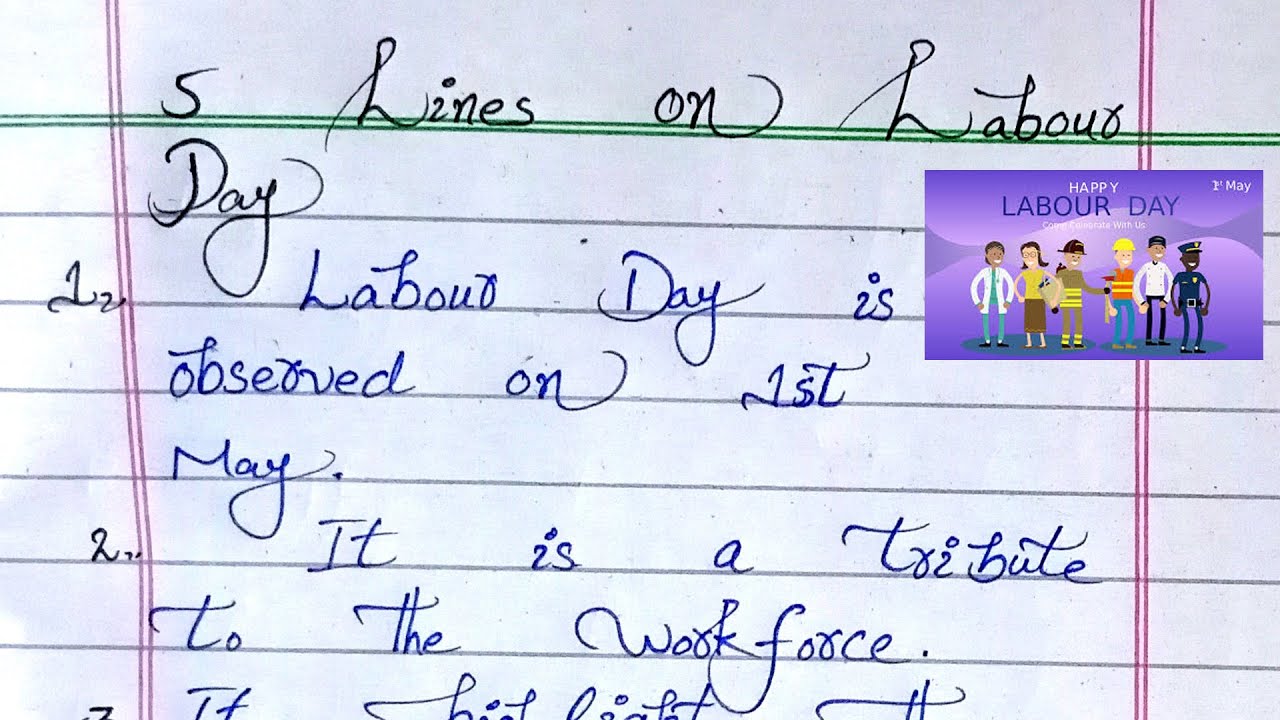 5 Lines on Labour
Day
HAPPY
1st May
LABOUR DAY
Come Celebrate With Us
1. Labour Day is
observed on 1st
May.
2. It is a tribute
to the workforce.
3. It